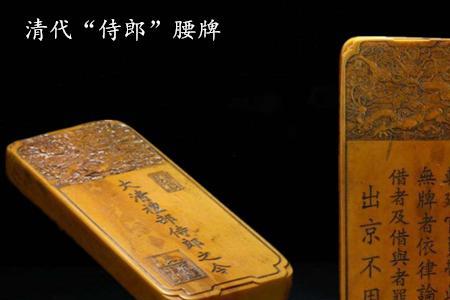 清代“侍郎”腰牌
大清部侍郎之令
無牌者依律論
借者及借與者
出京不